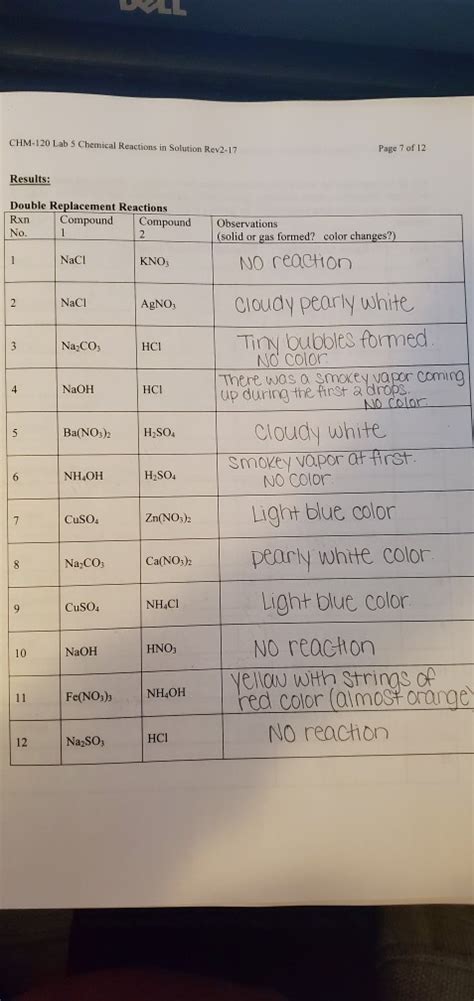 DELL
CHM-120 Lab 5 Chemical Reactions in Solution Rev2-17 Page 7 of 12
Results:
Double Replacement Reactions
Rxn No. Compound 1 Compound 2 Observations (solid or gas formed? color changes?)
1 NaCl KNO₃ NO reaction
2 NaCl AgNO₃ Cloudy pearly white
3 Na₂CO₃ HCl Tiny bubbles formed. NO color
4 NaOH HCl There was a smokey vapor coming up during the first 2 drops. No color.
5 Ba(NO₃)₂ H₂SO₄ Cloudy white
6 NH₄OH H₂SO₄ Smokey vapor at first. NO color
7 CuSO₄ Zn(NO₃)₂ Light blue color
8 Na₂CO₃ Ca(NO₃)₂ pearly white color.
9 CuSO₄ NH₄Cl Light blue color.
10 NaOH HNO₃ NO reaction
11 Fe(NO₃)₃ NH₄OH Yellow with strings of red color (almost orange)
12 Na₂SO₃ HCl NO reaction